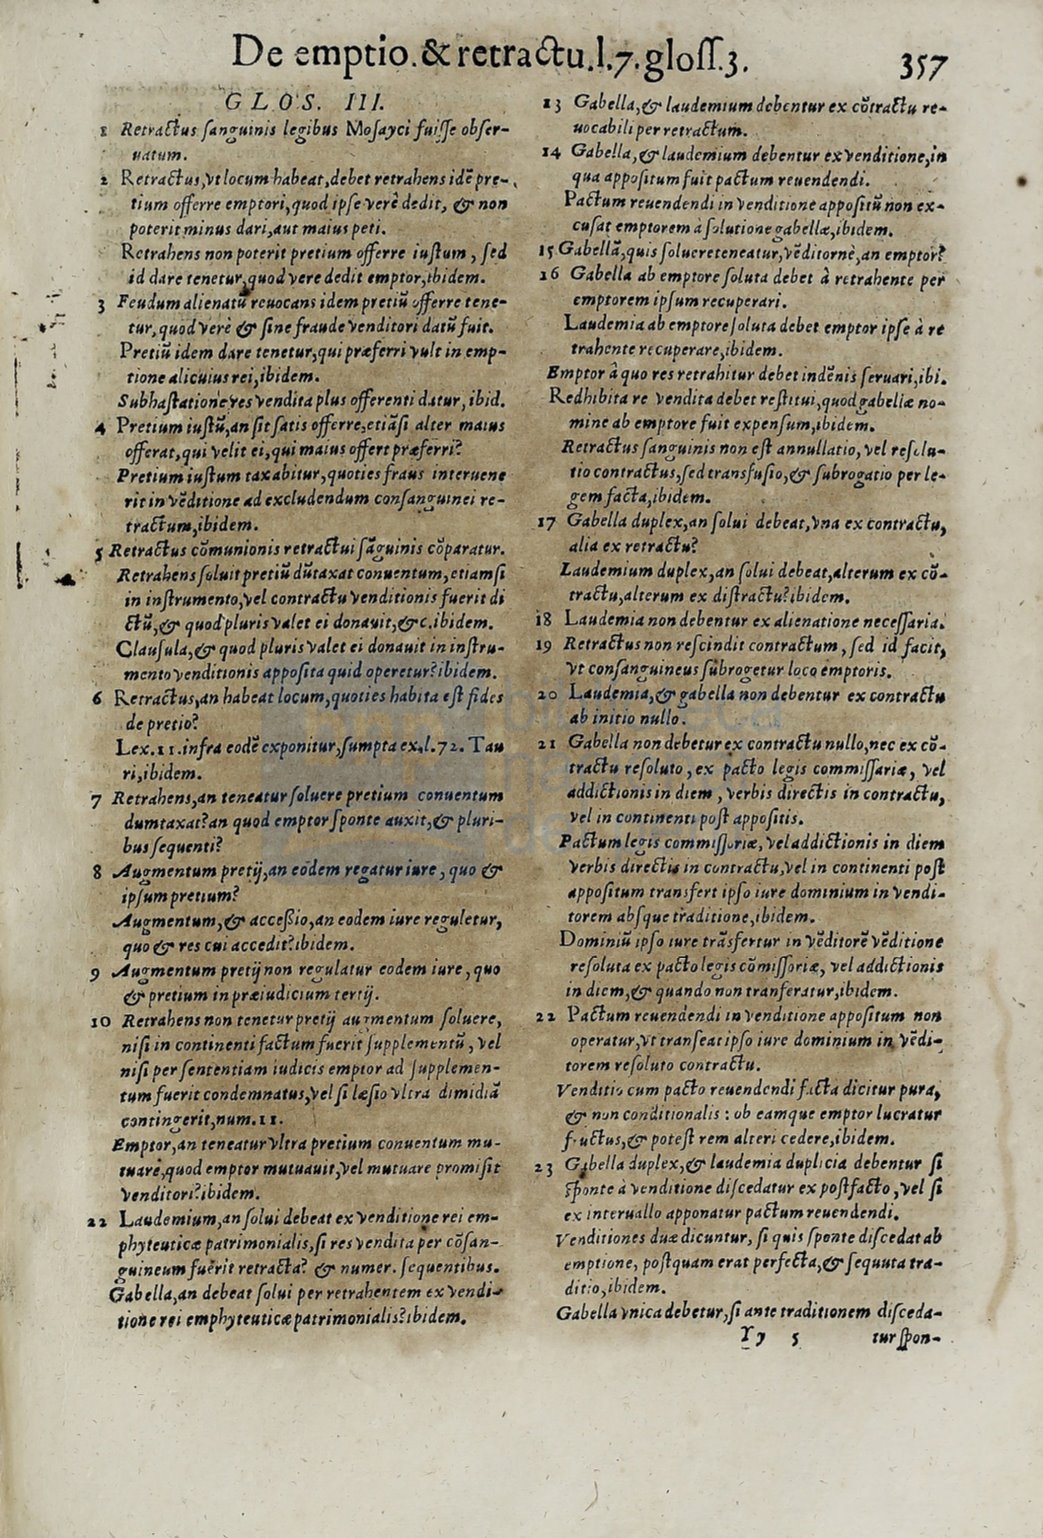 De emptio. & retractu. l. 7. gloſſ. 3. 357
GLOS. III.
1 Retractus ſanguinis legibus Moſayci fuiſſe obſer-
uatum.
2 Retractus, vt locum habeat, debet retrahens idē pre-
tium offerre emptori, quod ipſe verè dedit, & non
poterit minus dari, aut maius peti.
Retrahens non poterit pretium offerre iuſtum, ſed
id dare tenetur, quod vere dedit emptor, ibidem.
3 Feudum alienatū reuocans idem pretiū offerre tene-
tur, quod verè & ſine fraude venditori datū fuit.
Pretiū idem dare tenetur, qui præferri vult in emp-
tione alicuius rei, ibidem.
Subhaſtatione res vendita plus offerenti datur, ibid.
4 Pretium iuſtū, an ſit ſatis offerre, etiāſi alter maius
offerat, qui velit ei, qui maius offert præferri?
Pretium iuſtum taxabitur, quoties fraus interuene
rit in vēditione ad excludendum conſanguinei re-
tractum, ibidem.
5 Retractus cōmunionis retractui ſāguinis cōparatur.
Retrahens ſoluit pretiū dūtaxat conuentum, etiamſi
in inſtrumento, vel contractu venditionis fuerit di
ctū, & quod pluris valet ei donauit, &c. ibidem.
Clauſula, & quod pluris valet ei donauit in inſtru-
mento venditionis appoſita quid operetur? ibidem.
6 Retractus, an habeat locum, quoties habita eſt fides
de pretio?
Lex. 11. infra eodē exponitur, ſumpta ex. l. 72. Tau
ri, ibidem.
7 Retrahens, an teneatur ſoluere pretium conuentum
dumtaxat? an quod emptor ſponte auxit, & pluri-
bus ſequenti?
8 Augmentum pretij, an eodem regatur iure, quo &
ipſum pretium?
Augmentum, & acceßio, an eodem iure reguletur,
quo & res cui accedit? ibidem.
9 Augmentum pretij non regulatur eodem iure, quo
& pretium in præiudicium tertij.
10 Retrahens non tenetur pretij augmentum ſoluere,
niſi in continenti factum fuerit ſupplementū, vel
niſi per ſententiam iudicis emptor ad ſupplemen-
tum fuerit condemnatus, vel ſi læſio vltra dimidiā
contingerit, num. 11.
Emptor, an teneatur vltra pretium conuentum mu-
tuare, quod emptor mutuauit, vel mutuare promiſit
venditori? ibidem.
22 Laudemium, an ſolui debeat ex venditione rei em-
phyteuticæ patrimonialis, ſi res vendita per cōſan-
guineum fuerit retracta? & numer. ſequentibus.
Gabella, an debeat ſolui per retrahentem ex vendi-
tione rei emphyteuticæ patrimonialis? ibidem.
13 Gabella, & laudemium debentur ex cōtractu re-
uocabili per retractum.
14 Gabella, & laudemium debentur ex venditione, in
qua appoſitum fuit pactum reuendendi.
Pactum reuendendi in venditione appoſitū non ex-
cuſat emptorem à ſolutione gabellæ, ibidem.
15 Gabellā, quis ſoluere teneatur, vēditor nè, an emptor?
16 Gabella ab emptore ſoluta debet à retrahente per
emptorem ipſum recuperari.
Laudemia ab emptore ſoluta debet emptor ipſe à re
trahente recuperare, ibidem.
Emptor à quo res retrahitur debet indēnis ſeruari, ibi.
Redhibita re vendita debet reſtitui, quod gabellæ no-
mine ab emptore fuit expenſum, ibidem.
Retractus ſanguinis non eſt annullatio, vel reſolu-
tio contractus, ſed transfuſio, & ſubrogatio per le-
gem facta, ibidem.
17 Gabella duplex, an ſolui debeat, vna ex contractu,
alia ex retractu?
Laudemium duplex, an ſolui debeat, alterum ex cō-
tractu, alterum ex diſtractu? ibidem.
18 Laudemia non debentur ex alienatione neceſſaria.
19 Retractus non reſcindit contractum, ſed id facit,
vt conſanguineus ſubrogetur loco emptoris.
20 Laudemia, & gabella non debentur ex contractu
ab initio nullo.
21 Gabella non debetur ex contractu nullo, nec ex cō-
tractu reſoluto, ex pacto legis commiſſariæ, vel
addictionis in diem, verbis directis in contractu,
vel in continenti poſt appoſitis.
Pactum legis commiſſoriæ, vel addictionis in diem
verbis directis in contractu, vel in continenti poſt
appoſitum transfert ipſo iure dominium in vendi-
torem abſque traditione, ibidem.
Dominiū ipſo iure trāsfertur in vēditorē vēditione
reſoluta ex pacto legis cōmiſſoriæ, vel addictionis
in diem, & quando non tranferatur, ibidem.
22 Pactum reuendendi in venditione appoſitum non
operatur, vt tranſeat ipſo iure dominium in vēdi-
torem reſoluto contractu.
Venditio cum pacto reuendendi facta dicitur pura,
& non conditionalis: ob eamque emptor lucratur
fructus, & poteſt rem alteri cedere, ibidem.
23 Gabella duplex, & laudemia duplicia debentur ſi
ſponte à venditione diſcedatur ex poſtfacto, vel ſi
ex interuallo apponatur pactum reuendendi.
Venditiones duæ dicuntur, ſi quis ſponte diſcedat ab
emptione, poſtquam erat perfecta, & ſequuta tra-
ditio, ibidem.
Gabella vnica debetur, ſi ante traditionem diſceda-
Yy 5 tur ſpon-